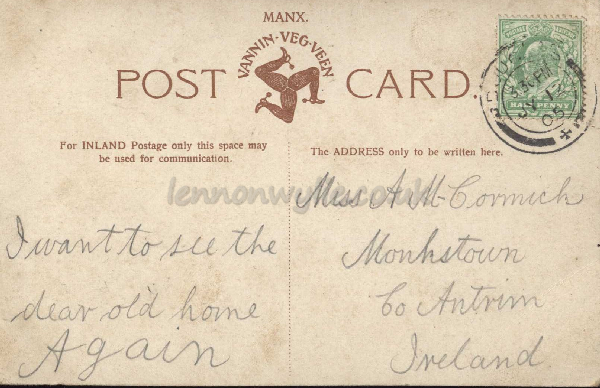 MANX.
VANNIN-VEG-VEEN
POST CARD.
HALF PENNY
For INLAND Postage only this space may
be used for communication.
The ADDRESS only to be written here.
lennonwylie.co.uk
I want to see the
dear old home
Again
Miss A McCormick
Monkstown
Co Antrim
Ireland.